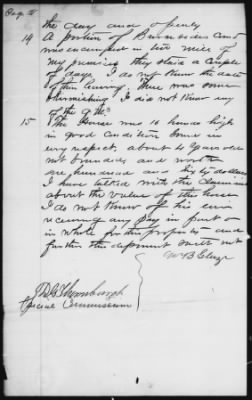 Page 4
the day and openly
14 A portion of Burnsides Com'd
was encamped in two miles of
my premises they staid a couple
of days. I do not know the date
of their leaving. There was some
skirmishing I did not know any
of the Q.M.s
15 The Horse was 16 hands high
in good condition sound in
every respect. about 6 years old
not branded and worth
one hundred and sixty dollars
I have talked with the claimant
about the value of the horse
I do not know of his ever
receiving any pay in part or
in whole for this property and
further the deponent saith not
W B
D. G. Thornburgh
Special Commissioner